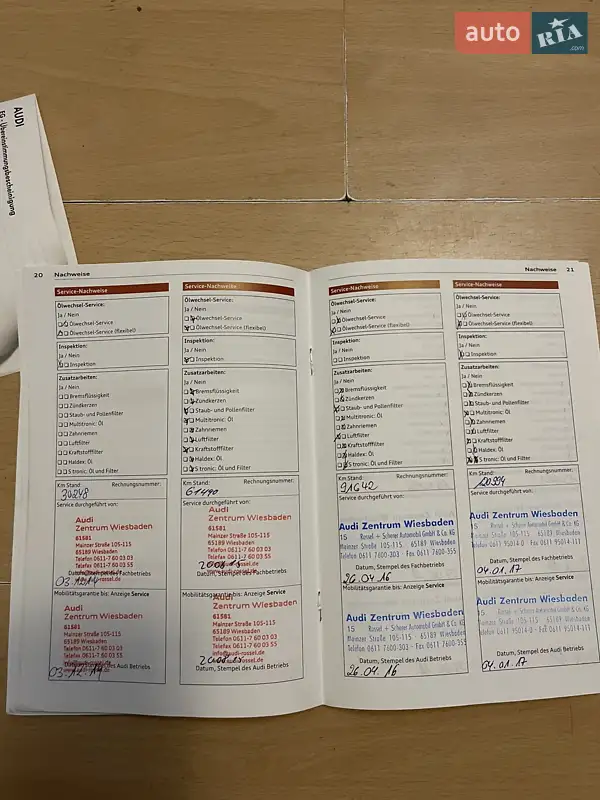 auto RIA.com
AUDI
EG - Übereinstimmungsbescheinigung
20 Nachweise
Service-Nachweise
Ölwechsel-Service:
Ja / Nein
Ölwechsel-Service
Ölwechsel-Service (flexibel)
Inspektion:
Ja / Nein
Inspektion
Zusatzarbeiten:
Ja / Nein
Bremsflüssigkeit
Zündkerzen
Staub- und Pollenfilter
Multitronic: Öl
Zahnriemen
Luftfilter
Kraftstofffilter
Haldex: Öl
S tronic: Öl und Filter
Km Stand: Rechnungsnummer:
30248
Service durchgeführt von:
Audi
Zentrum Wiesbaden
61581
Mainzer Straße 105-115
65189 Wiesbaden
Telefon 0611-7 60 03 03
Telefax 0611-7 60 03 55
Datum, Stempel des Fachbetriebs
03.12.14
Mobilitätsgarantie bis: Anzeige Service
Audi
Zentrum Wiesbaden
61581
Mainzer Straße 105-115
65189 Wiesbaden
Telefon 0611-7 60 03 03
Telefax 0611-7 60 03 55
03.12.14
Datum, Stempel des Audi Betriebs
Service-Nachweise
Ölwechsel-Service:
Ja / Nein
Ölwechsel-Service
Ölwechsel-Service (flexibel)
Inspektion:
Ja / Nein
Inspektion
Zusatzarbeiten:
Ja / Nein
Bremsflüssigkeit
Zündkerzen
Staub- und Pollenfilter
Multitronic: Öl
Zahnriemen
Luftfilter
Kraftstofffilter
Haldex: Öl
S tronic: Öl und Filter
Km Stand: Rechnungsnummer:
61490
Service durchgeführt von:
Audi
Zentrum Wiesbaden
61581
Mainzer Straße 105-115
65189 Wiesbaden
Telefon 0611-7 60 03 03
Telefax 0611-7 60 03 55
Datum, Stempel des Fachbetriebs
Mobilitätsgarantie bis: Anzeige Service
Audi
Zentrum Wiesbaden
61581
Mainzer Straße 105-115
65189 Wiesbaden
Telefon 0611-7 60 03 03
Telefax 0611-7 60 03 55
info@audi-rossel.de
Datum, Stempel des Audi Betriebs
Nachweise 21
Service-Nachweise
Ölwechsel-Service:
Ja / Nein
Ölwechsel-Service
Ölwechsel-Service (flexibel)
Inspektion:
Ja / Nein
Inspektion
Zusatzarbeiten:
Ja / Nein
Bremsflüssigkeit
Zündkerzen
Staub- und Pollenfilter
Multitronic: Öl
Zahnriemen
Luftfilter
Kraftstofffilter
Haldex: Öl
S tronic: Öl und Filter
Km Stand: Rechnungsnummer:
91642
Service durchgeführt von:
Audi Zentrum Wiesbaden
15 Rossel + Scherer Automobil GmbH & Co. KG
Mainzer Straße 105-115 · 65189 Wiesbaden
Telefon 0611 7600-303 · Fax 0611 7600-355
Datum, Stempel des Fachbetriebs
26.04.16
Mobilitätsgarantie bis: Anzeige Service
Audi Zentrum Wiesbaden
15 Rossel + Scherer Automobil GmbH & Co. KG
Mainzer Straße 105-115 · 65189 Wiesbaden
Telefon 0611 7600-303 · Fax 0611 7600-355
Datum, Stempel des Audi Betriebs
26.04.16
Service-Nachweise
Ölwechsel-Service:
Ja / Nein
Ölwechsel-Service
Ölwechsel-Service (flexibel)
Inspektion:
Ja / Nein
Inspektion
Zusatzarbeiten:
Ja / Nein
Bremsflüssigkeit
Zündkerzen
Staub- und Pollenfilter
Multitronic: Öl
Zahnriemen
Luftfilter
Kraftstofffilter
Haldex: Öl
S tronic: Öl und Filter
Km Stand: Rechnungsnummer:
Service durchgeführt von:
Audi Zentrum Wiesbaden
15 Rossel + Scherer Automobil GmbH & Co. KG
Mainzer Straße 105-115 · 65189 Wiesbaden
Datum, Stempel des Fachbetriebs
04.01.17
Mobilitätsgarantie bis: Anzeige Service
Audi Zentrum Wiesbaden
15 Rossel + Scherer Automobil GmbH & Co. KG
Mainzer Straße 105-115 · 65189 Wiesbaden
Datum, Stempel des Audi Betriebs
04.01.17